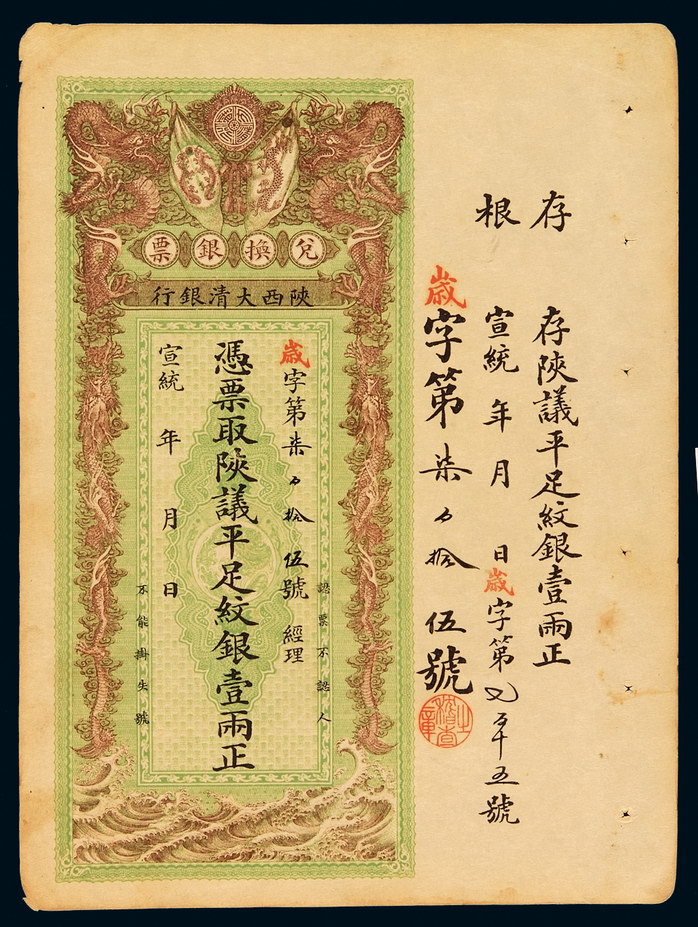 存根
存陝議平足紋銀壹兩正
宣統 年 月 日歲字第 五號
歲字第柒 拾伍號
稽查之章
兌換銀票
陝西大清銀行
認票不認人
歲字第柒 拾伍號 經理
憑票取陝議平足紋銀壹兩正
宣統 年 月 日
不能掛失號